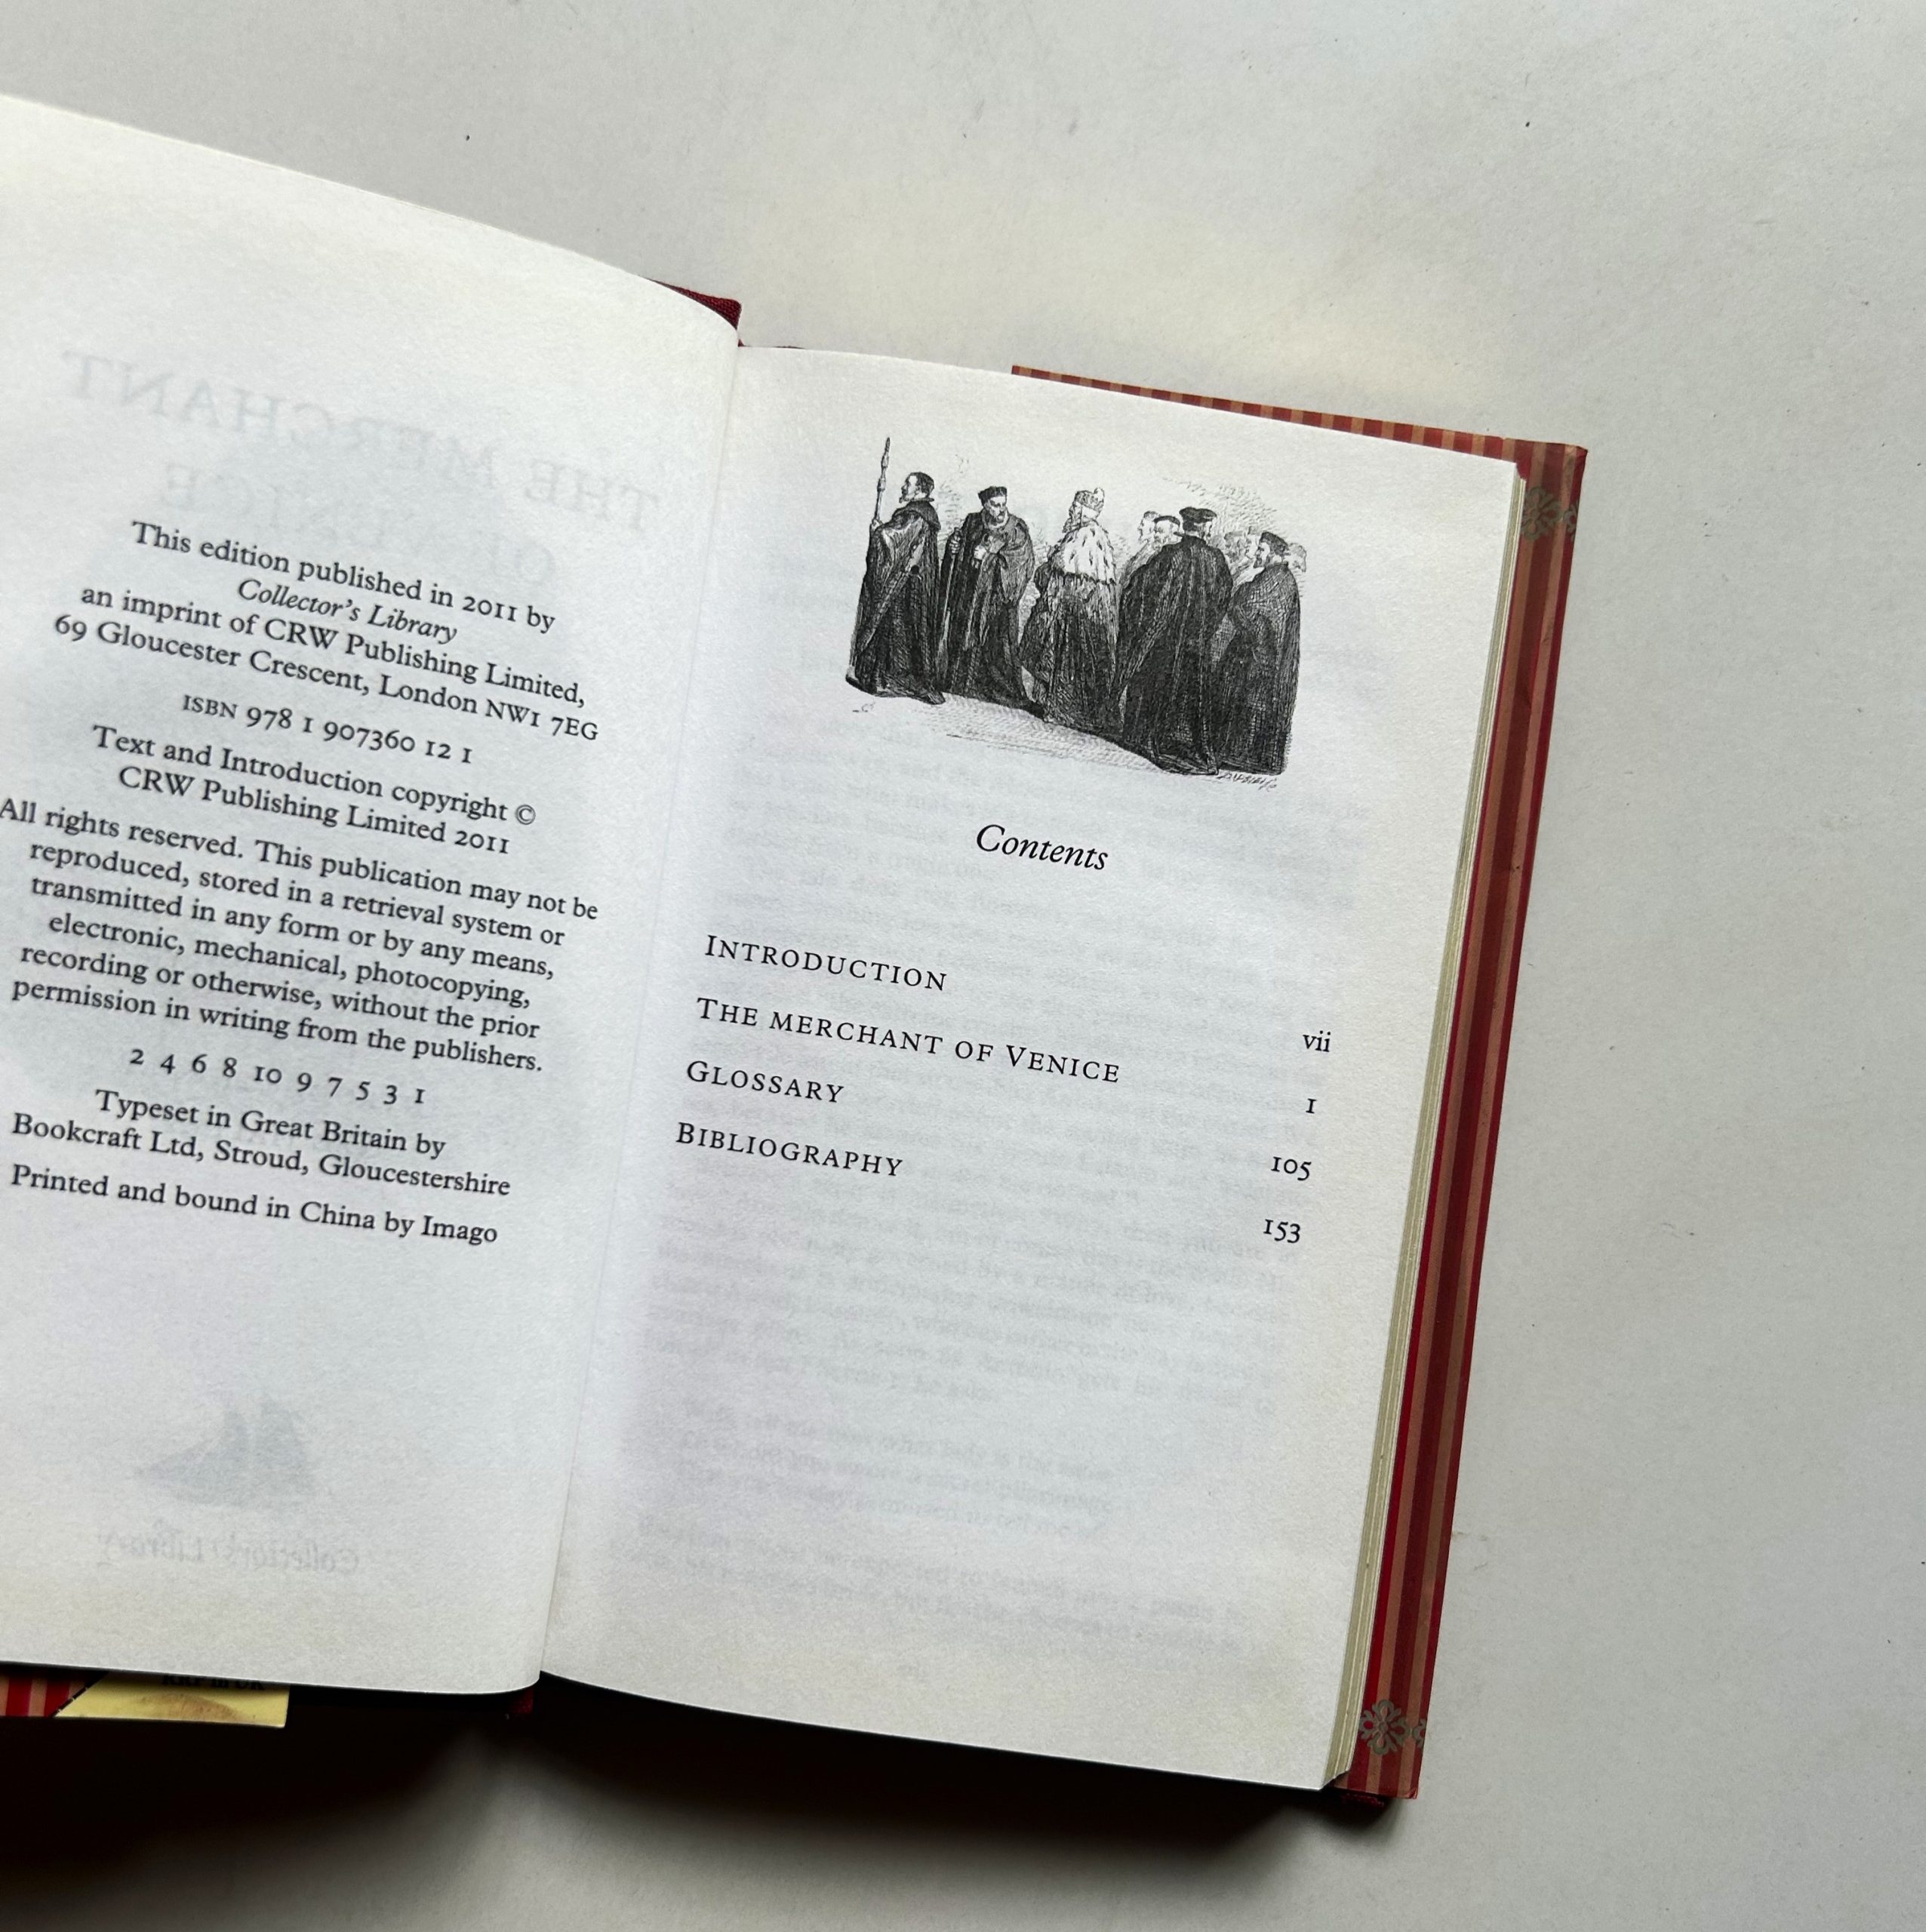 This edition published in 2011 by
Collector's Library
an imprint of CRW Publishing Limited,
69 Gloucester Crescent, London NW1 7EG
ISBN 978 1 907360 12 1
Text and Introduction copyright ©
CRW Publishing Limited 2011
All rights reserved. This publication may not be
reproduced, stored in a retrieval system or
transmitted in any form or by any means,
electronic, mechanical, photocopying,
recording or otherwise, without the prior
permission in writing from the publishers.
2 4 6 8 10 9 7 5 3 1
Typeset in Great Britain by
Bookcraft Ltd, Stroud, Gloucestershire
Printed and bound in China by Imago
Contents
INTRODUCTION vii
THE MERCHANT OF VENICE 1
GLOSSARY 105
BIBLIOGRAPHY 153